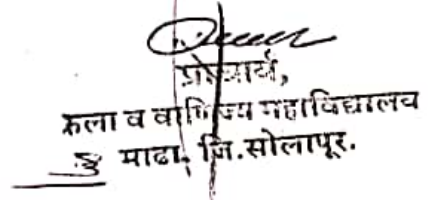 प्राचार्य,
कला व वाणिज्य महाविद्यालय
माढा, जि.सोलापूर.